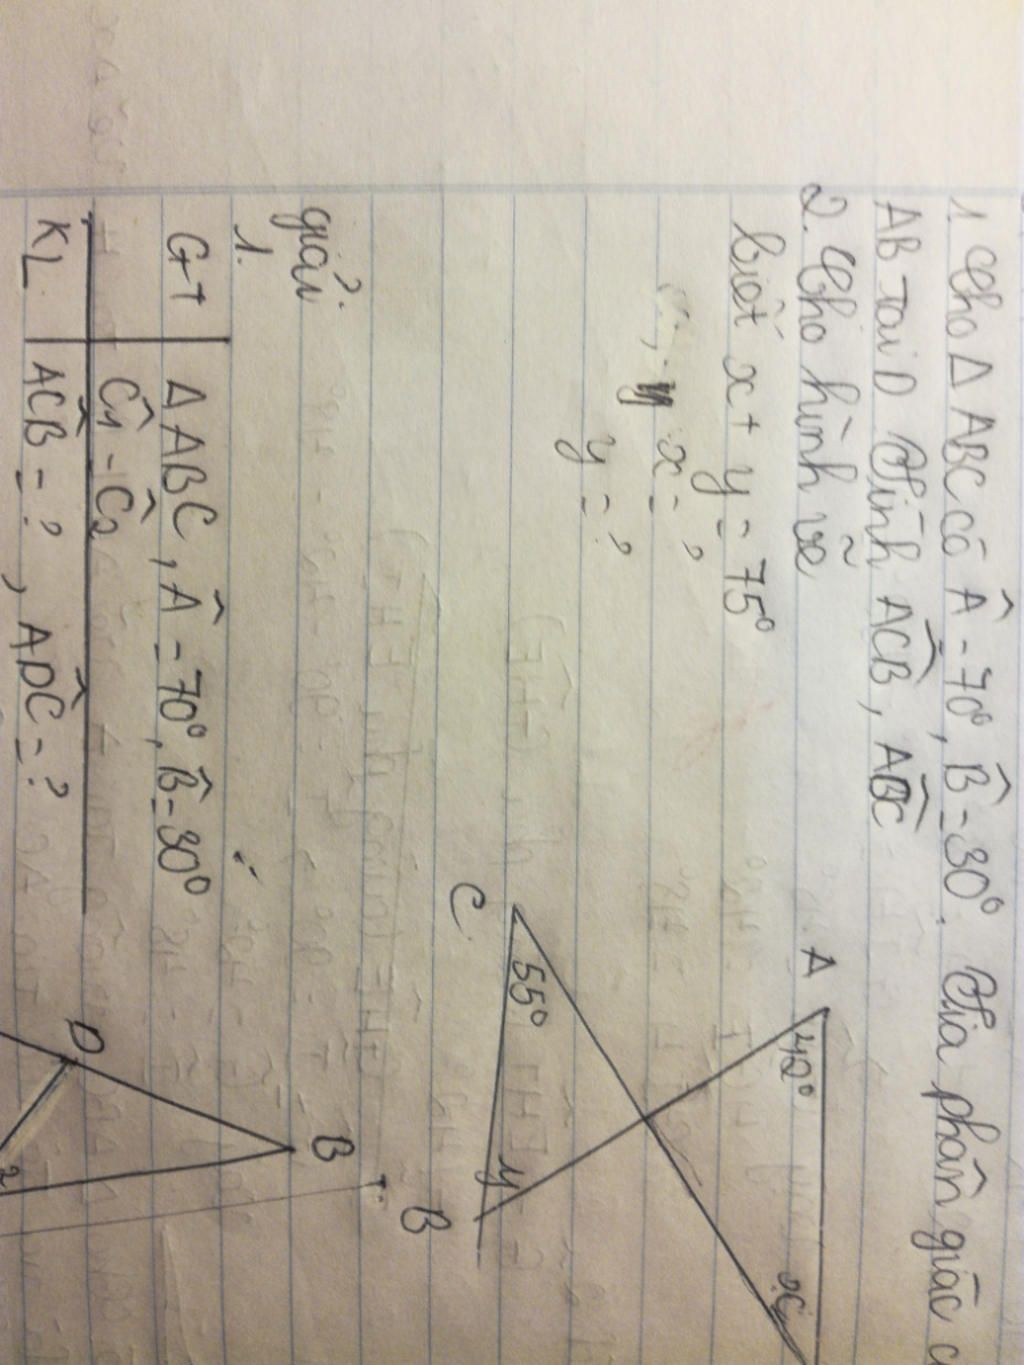 1. Cho Δ ABC có Â = 70°, B̂ = 30°. Tia phân giác c
AB tại D Tính ACB̂, ADĈ
2. Cho hình vẽ
biết x + y = 75°
x = ?
y = ?
A
42°
x
C
55°
y
B
giải
1.
GT | Δ ABC, Â = 70°, B̂ = 30°
Ĉ1 = Ĉ2
KL | ACB̂ = ? , ADĈ = ?
B
D
2